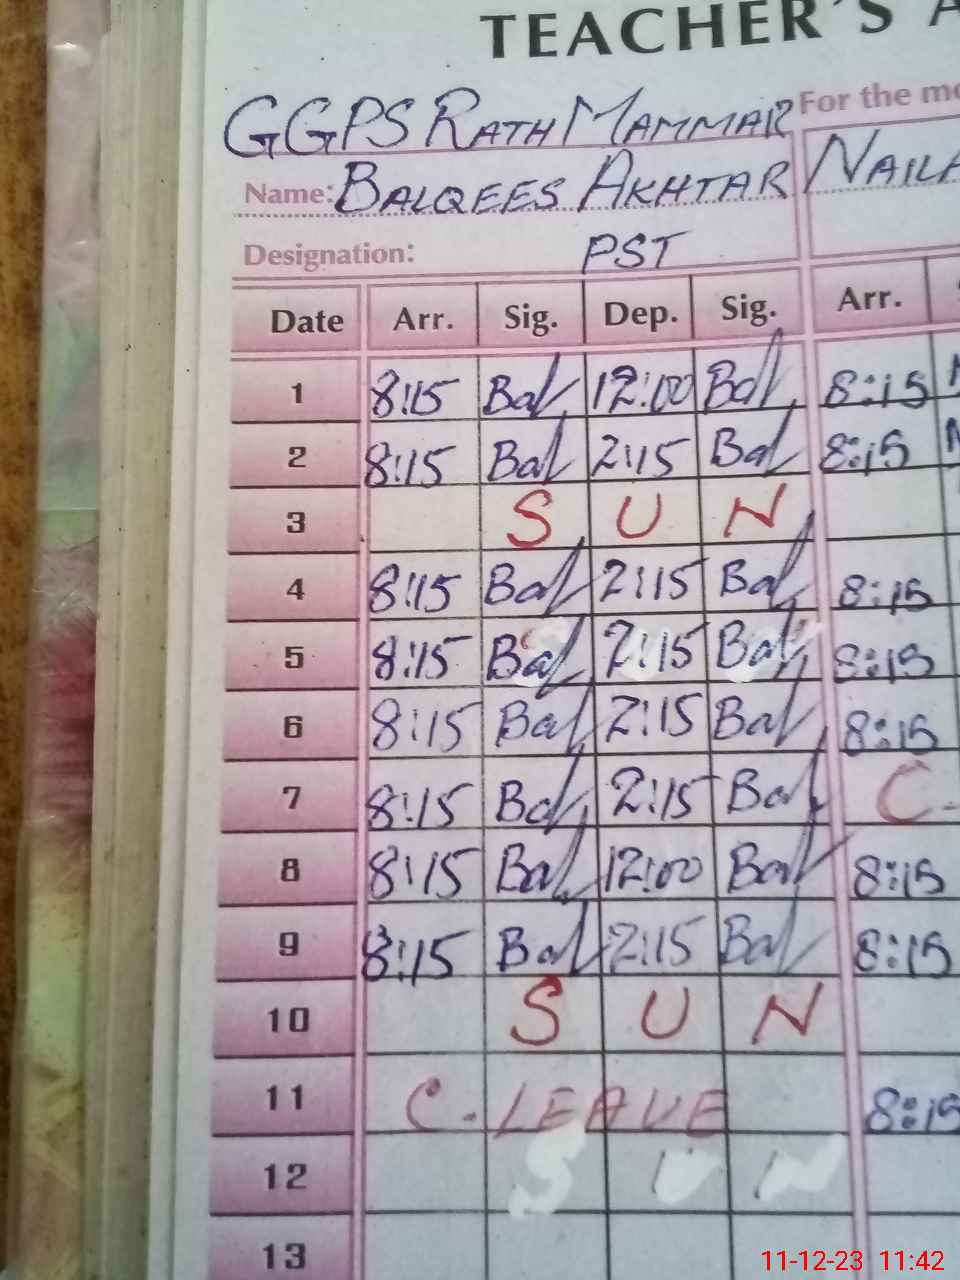 TEACHER'S A
GGPS RATH MAMMAR For the mo
Name: BALQEES AKHTAR NAILA
Designation: PST
Date Arr. Sig. Dep. Sig. Arr.
1 8:15 Bal 12:00 Bal 8:15
2 8:15 Bal 2:15 Bal 8:15
3 S U N
4 8:15 Bal 2:15 Bal 8:15
5 8:15 Bal 2:15 Bal 8:15
6 8:15 Bal 2:15 Bal 8:15
7 8:15 Bal 2:15 Bal C.
8 8:15 Bal 12:00 Bal 8:15
9 8:15 Bal 2:15 Bal 8:15
10 S U N
11 C. LEAVE 8:15
12 S U N
13
11-12-23 11:42